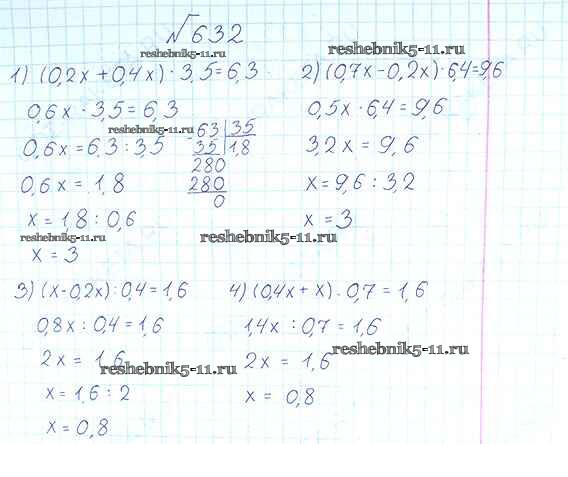 №632
reshebnik5-11.ru
reshebnik5-11.ru
1) (0,2x + 0,4x) · 3,5 = 6,3
2) (0,7x - 0,2x) · 6,4 = 9,6
0,6x · 3,5 = 6,3
0,5x · 6,4 = 9,6
reshebnik5-11.ru
0,6x = 6,3 : 3,5
- 63 | 35
35 | 1,8
280
280
0
3,2x = 9,6
0,6x = 1,8
x = 9,6 : 3,2
x = 1,8 : 0,6
x = 3
reshebnik5-11.ru
reshebnik5-11.ru
x = 3
3) (x - 0,2x) : 0,4 = 1,6
4) (0,4x + x) · 0,7 = 1,6
0,8x : 0,4 = 1,6
1,4x : 0,7 = 1,6
reshebnik5-11.ru
2x = 1,6
2x = 1,6
reshebnik5-11.ru
x = 1,6 : 2
x = 0,8
x = 0,8